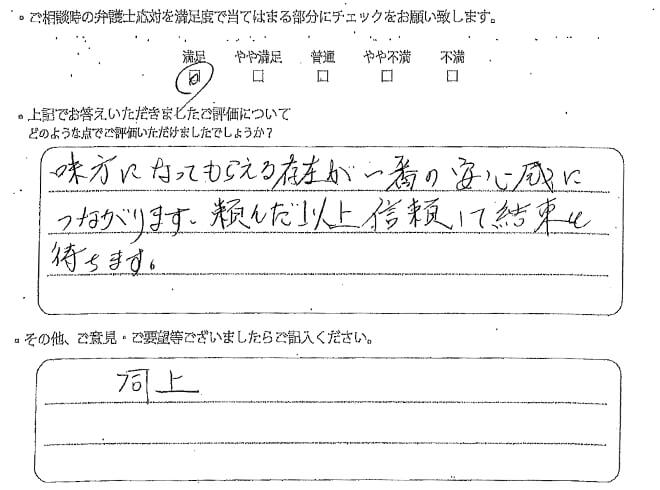 。ご相談時の弁護士応対を満足度で当てはまる部分にチェックをお願い致します。
満足 やや満足 普通 やや不満 不満
。上記でお答えいただきましたご評価について
どのような点でご評価いただけましたでしょうか？
味方になってもらえる存在が一番の安心感に
つながります。頼んだ以上信頼して結束を
待ちます。
。その他、ご意見・ご要望等ございましたらご記入ください。
同上